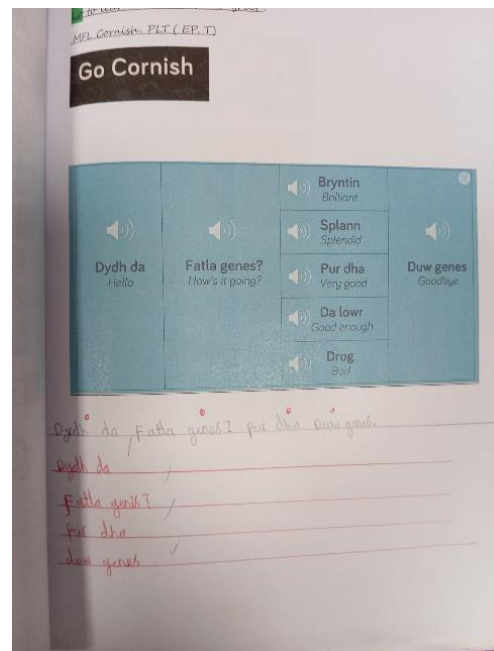 MFL Cornish PLT (EP. T)
Go Cornish
Dydh da
Hello
Fatla genes?
How's it going?
Bryntin
Brilliant
Splann
Splendid
Pur dha
Very good
Da lowr
Good enough
Drog
Bad
Duw genes
Goodbye
Dydh da, Fatla genes? Pur dha Duw genes.
Dydh da
Fatla genis?
Pur dha
duw genes